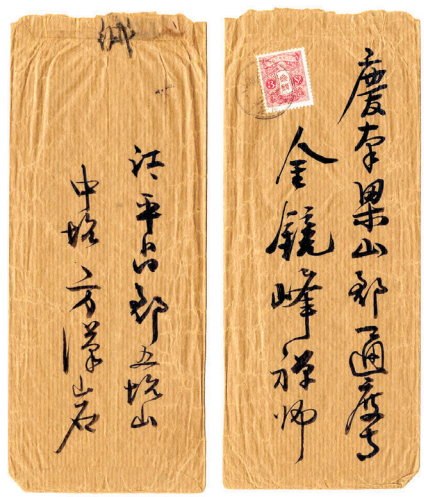 慶南梁山郡通度寺
金鏡峰禪師
江、平昌郡五坮山
中坮、方漢岩